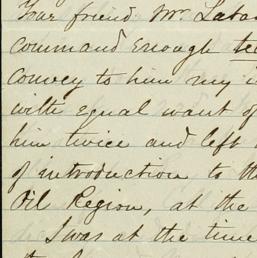 Your friend Mr.
command enough
convey to him my
with equal want of
him twice and left
of introduction to the
Oil Region, at the
I was at the time